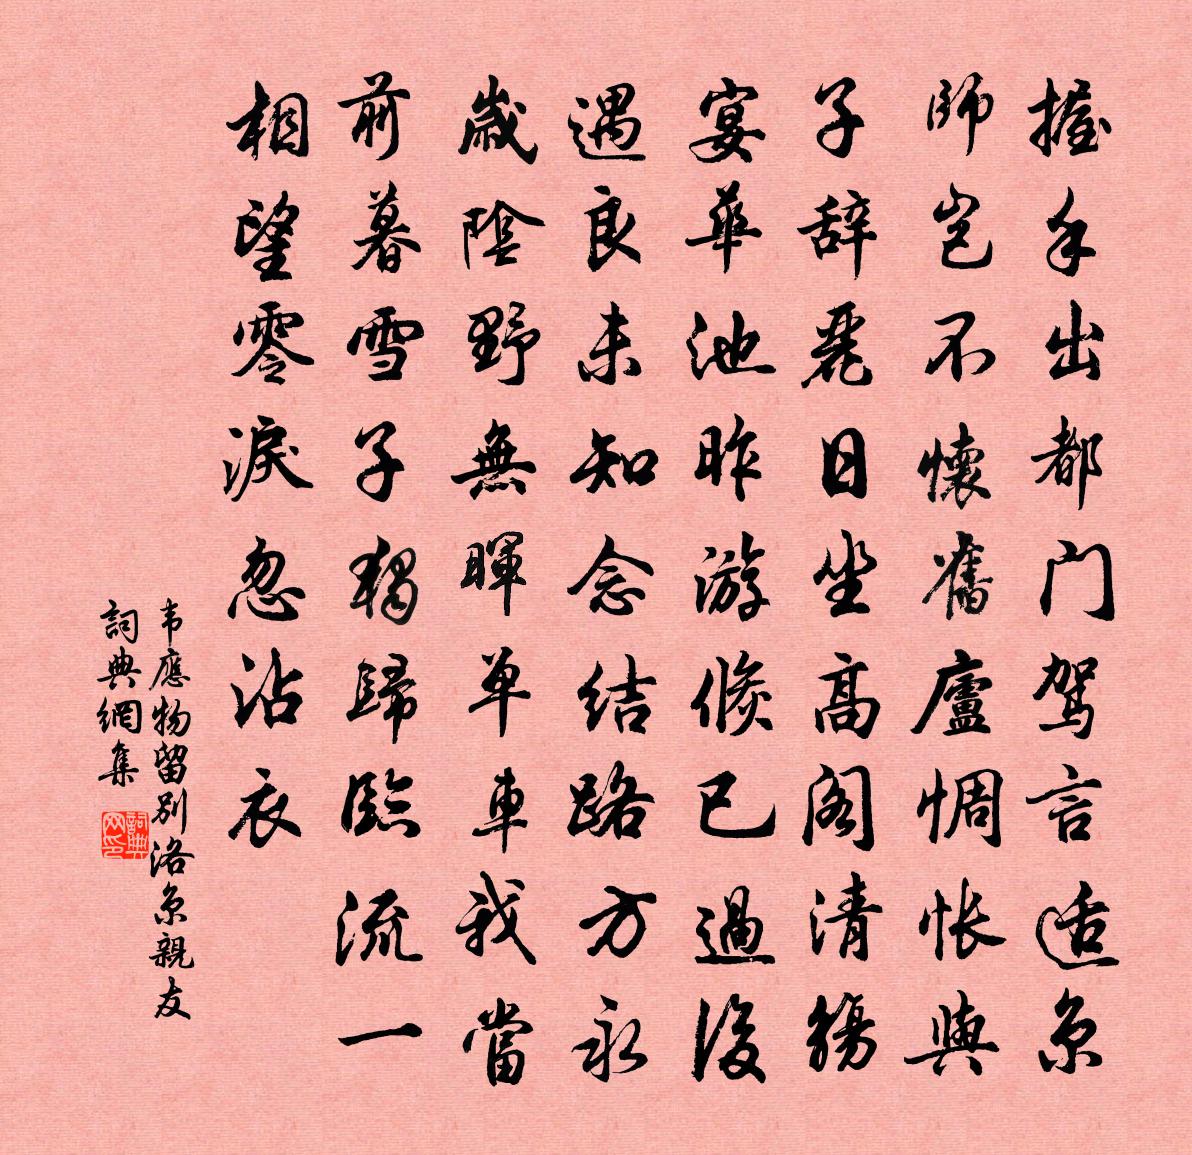 握手出都门駕言适京
師豈不懷舊廬惆怅與
子辞麗日坐高阁清觴
宴華池昨游倏已過後
遇良未知念结路方永
歲陰野無暉单車我當
前暮雪子獨歸臨流一
相望零淚忽沾衣
韦應物留别洛京親友
詞典網集
詞典网印